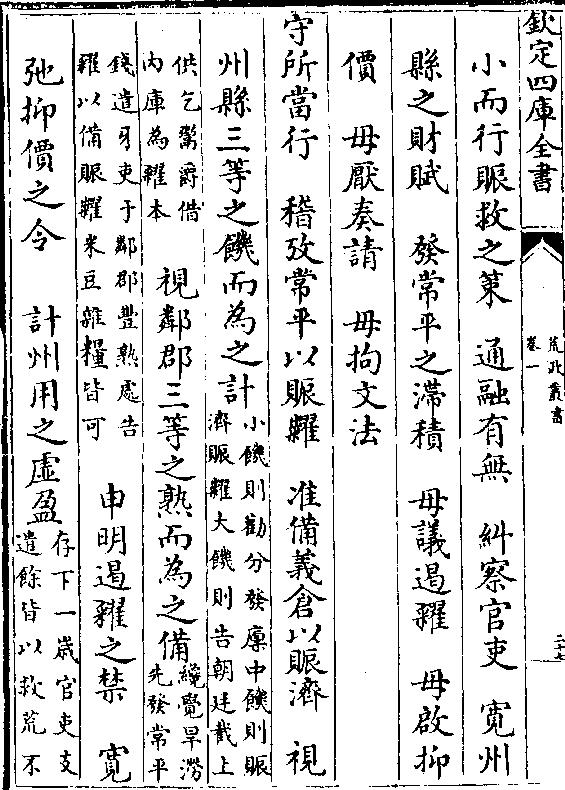 欽定四庫全書
荒政叢書
卷一
二十七
小而行賑救之策　通融有無　糾察官吏　寛州
縣之財賦　發常平之滯積　毋議遏糴　毋啟抑
價　毋厭奏請　毋拘文法
守所當行　稽攷常平以賑糶　准備義倉以賑濟　視
州縣三等之饑而為之計
小饑則勸分發廩中饑則賑
濟賑糶大饑則告朝廷截上
供乞鬻爵借
内庫為糴本
視鄰郡三等之熟而為之備
纔覺旱澇
先發常平
錢遣牙吏于鄰郡豐熟處告
糴以備賑糶米豆雜糧皆可
申明遏糴之禁　寛
弛抑價之令　計州用之虛盈
存下一歲官吏支
遣餘皆以救荒不